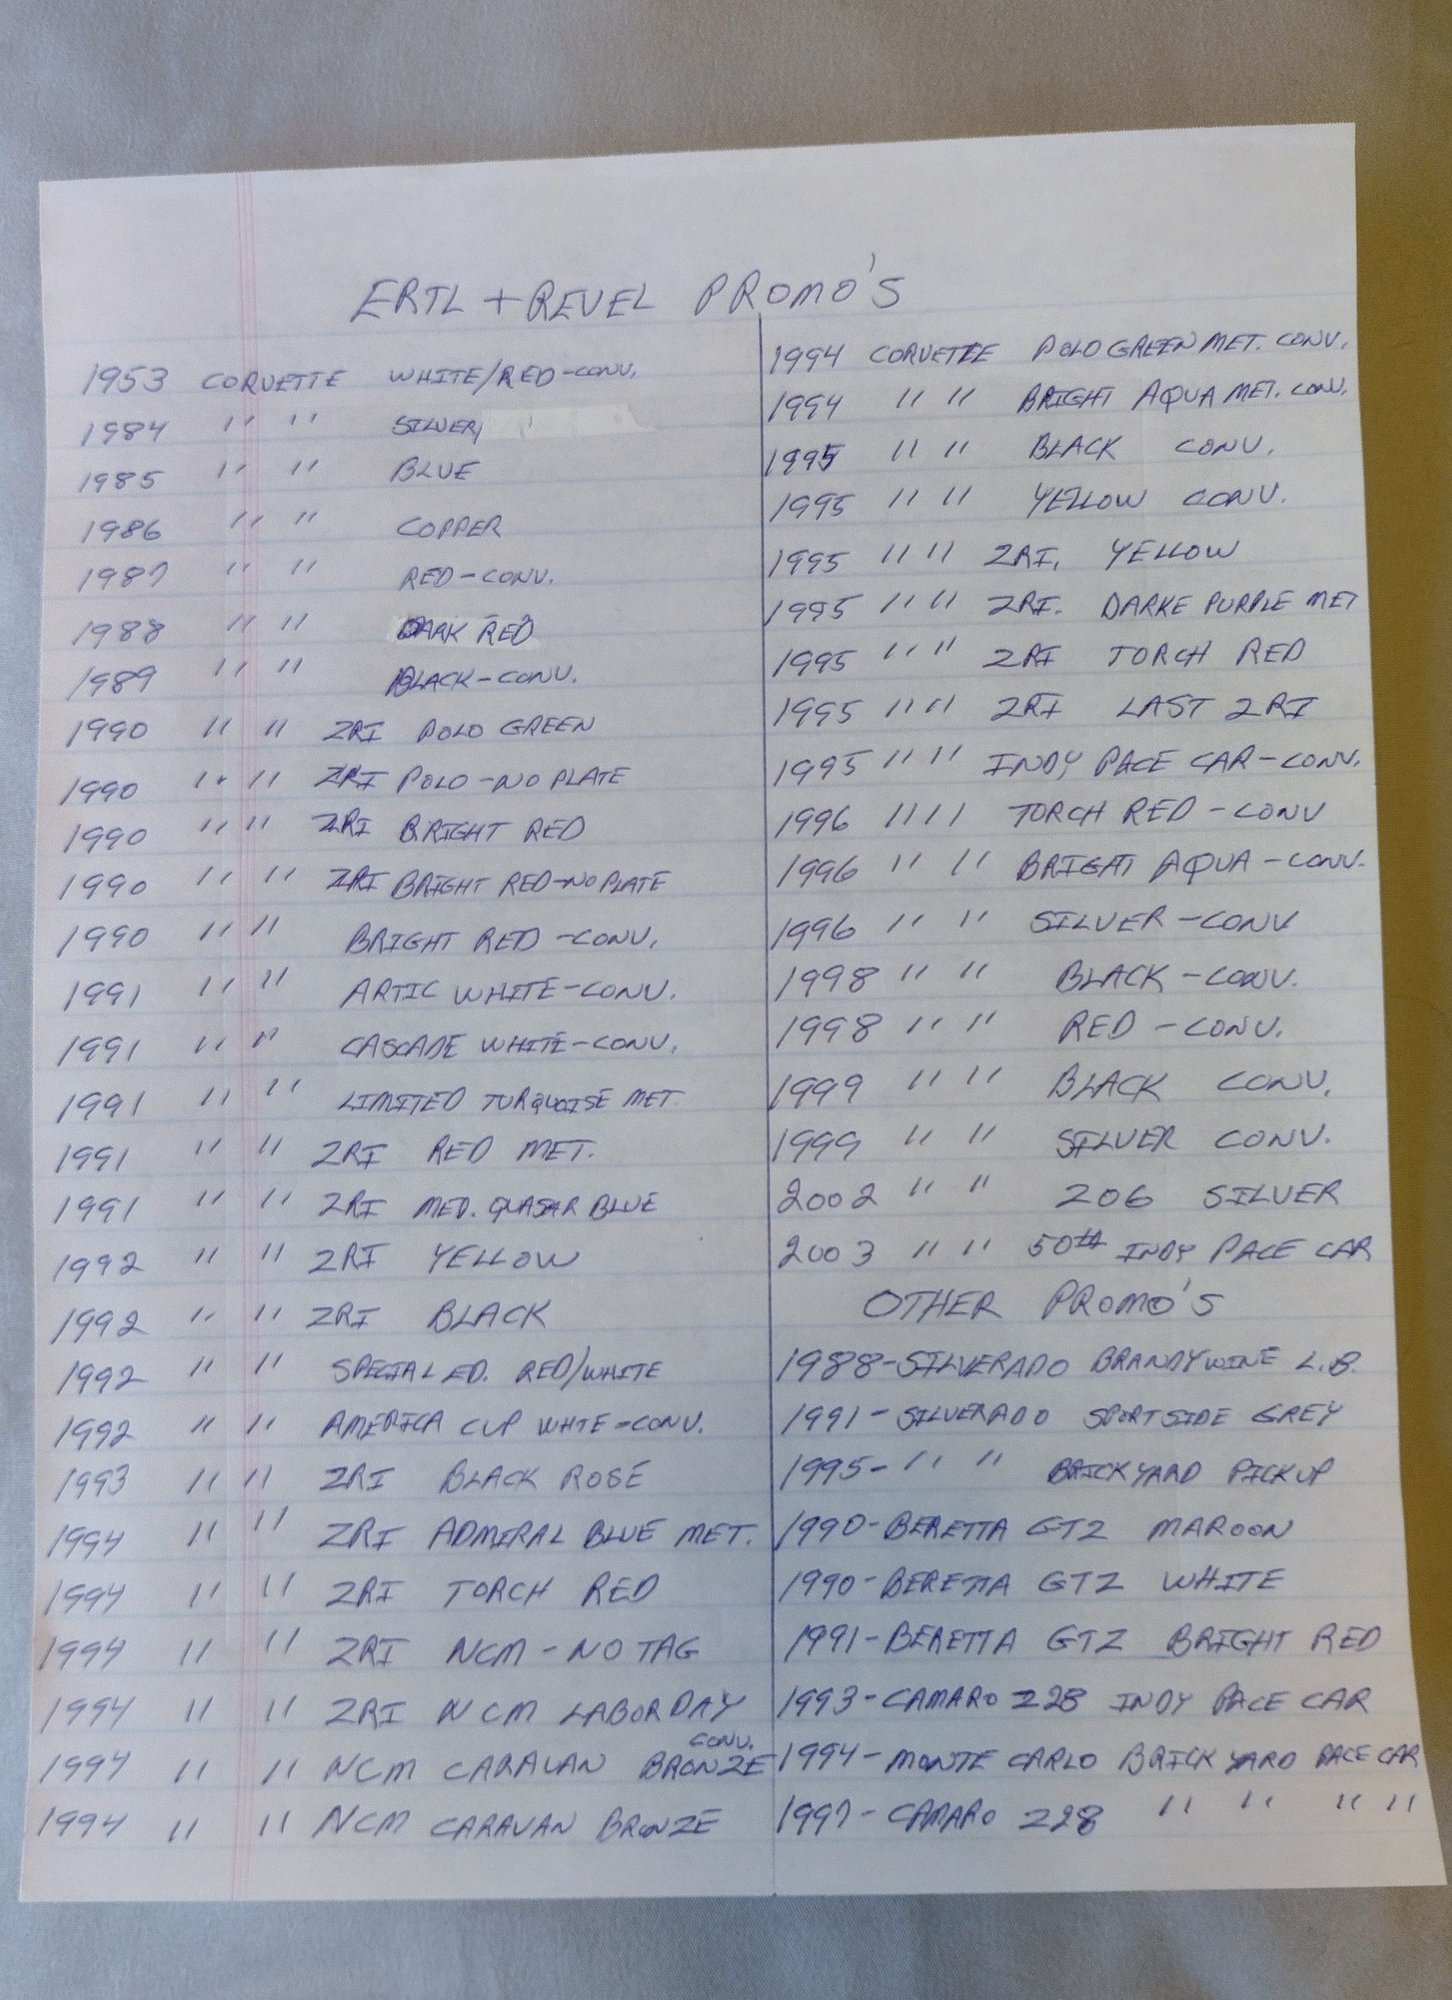 ERTL + REVEL PROMO'S
1953 CORVETTE WHITE/RED-CONV.
1984 " " SILVER
1985 " " BLUE
1986 " " COPPER
1987 " " RED-CONV.
1988 " " DARK RED
1989 " " BLACK-CONV.
1990 " " ZRI POLO GREEN
1990 " " ZRI POLO-NO PLATE
1990 " " ZRI BRIGHT RED
1990 " " ZRI BRIGHT RED-NO PLATE
1990 " " BRIGHT RED-CONV.
1991 " " ARTIC WHITE-CONV.
1991 " " CASCADE WHITE-CONV.
1991 " " LIMITED TURQUOISE MET.
1991 " " ZRI RED MET.
1991 " " ZRI MED. QUASAR BLUE
1992 " " ZRI YELLOW
1992 " " ZRI BLACK
1992 " " SPECIAL ED. RED/WHITE
1992 " " AMERICA CUP WHTE-CONV.
1993 " " ZRI BLACK ROSE
1994 " " ZRI ADMIRAL BLUE MET.
1994 " " ZRI TORCH RED
1994 " " ZRI NCM - NO TAG
1994 " " ZRI NCM LABOR DAY
1994 " " NCM CARAVAN BRONZE CONV.
1994 " " NCM CARAVAN BRONZE
1994 CORVETTE POLO GREEN MET. CONV.
1994 " " BRIGHT AQUA MET. CONV.
1995 " " BLACK CONV.
1995 " " YELLOW CONV.
1995 " " ZRI. YELLOW
1995 " " ZRI. DARKE PURPLE MET
1995 " " ZRI TORCH RED
1995 " " ZRI LAST ZRI
1995 " " INDY PACE CAR-CONV.
1996 " " TORCH RED-CONV
1996 " " BRIGHT AQUA-CONV.
1996 " " SILVER-CONV
1998 " " BLACK-CONV.
1998 " " RED-CONV.
1999 " " BLACK CONV.
1999 " " SILVER CONV.
2002 " " Z06 SILVER
2003 " " 50th INDY PACE CAR
OTHER PROMO'S
1988-SILVERADO BRANDYWINE L.B.
1991-SILVERADO SPORTSIDE GREY
1995- " " BRICKYARD PICKUP
1990-BERETTA GTZ MAROON
1990-BERETTA GTZ WHITE
1991-BERETTA GTZ BRIGHT RED
1993-CAMARO Z28 INDY PACE CAR
1994-MONTE CARLO BRICKYARD PACE CAR
1997-CAMARO Z28 " " " "